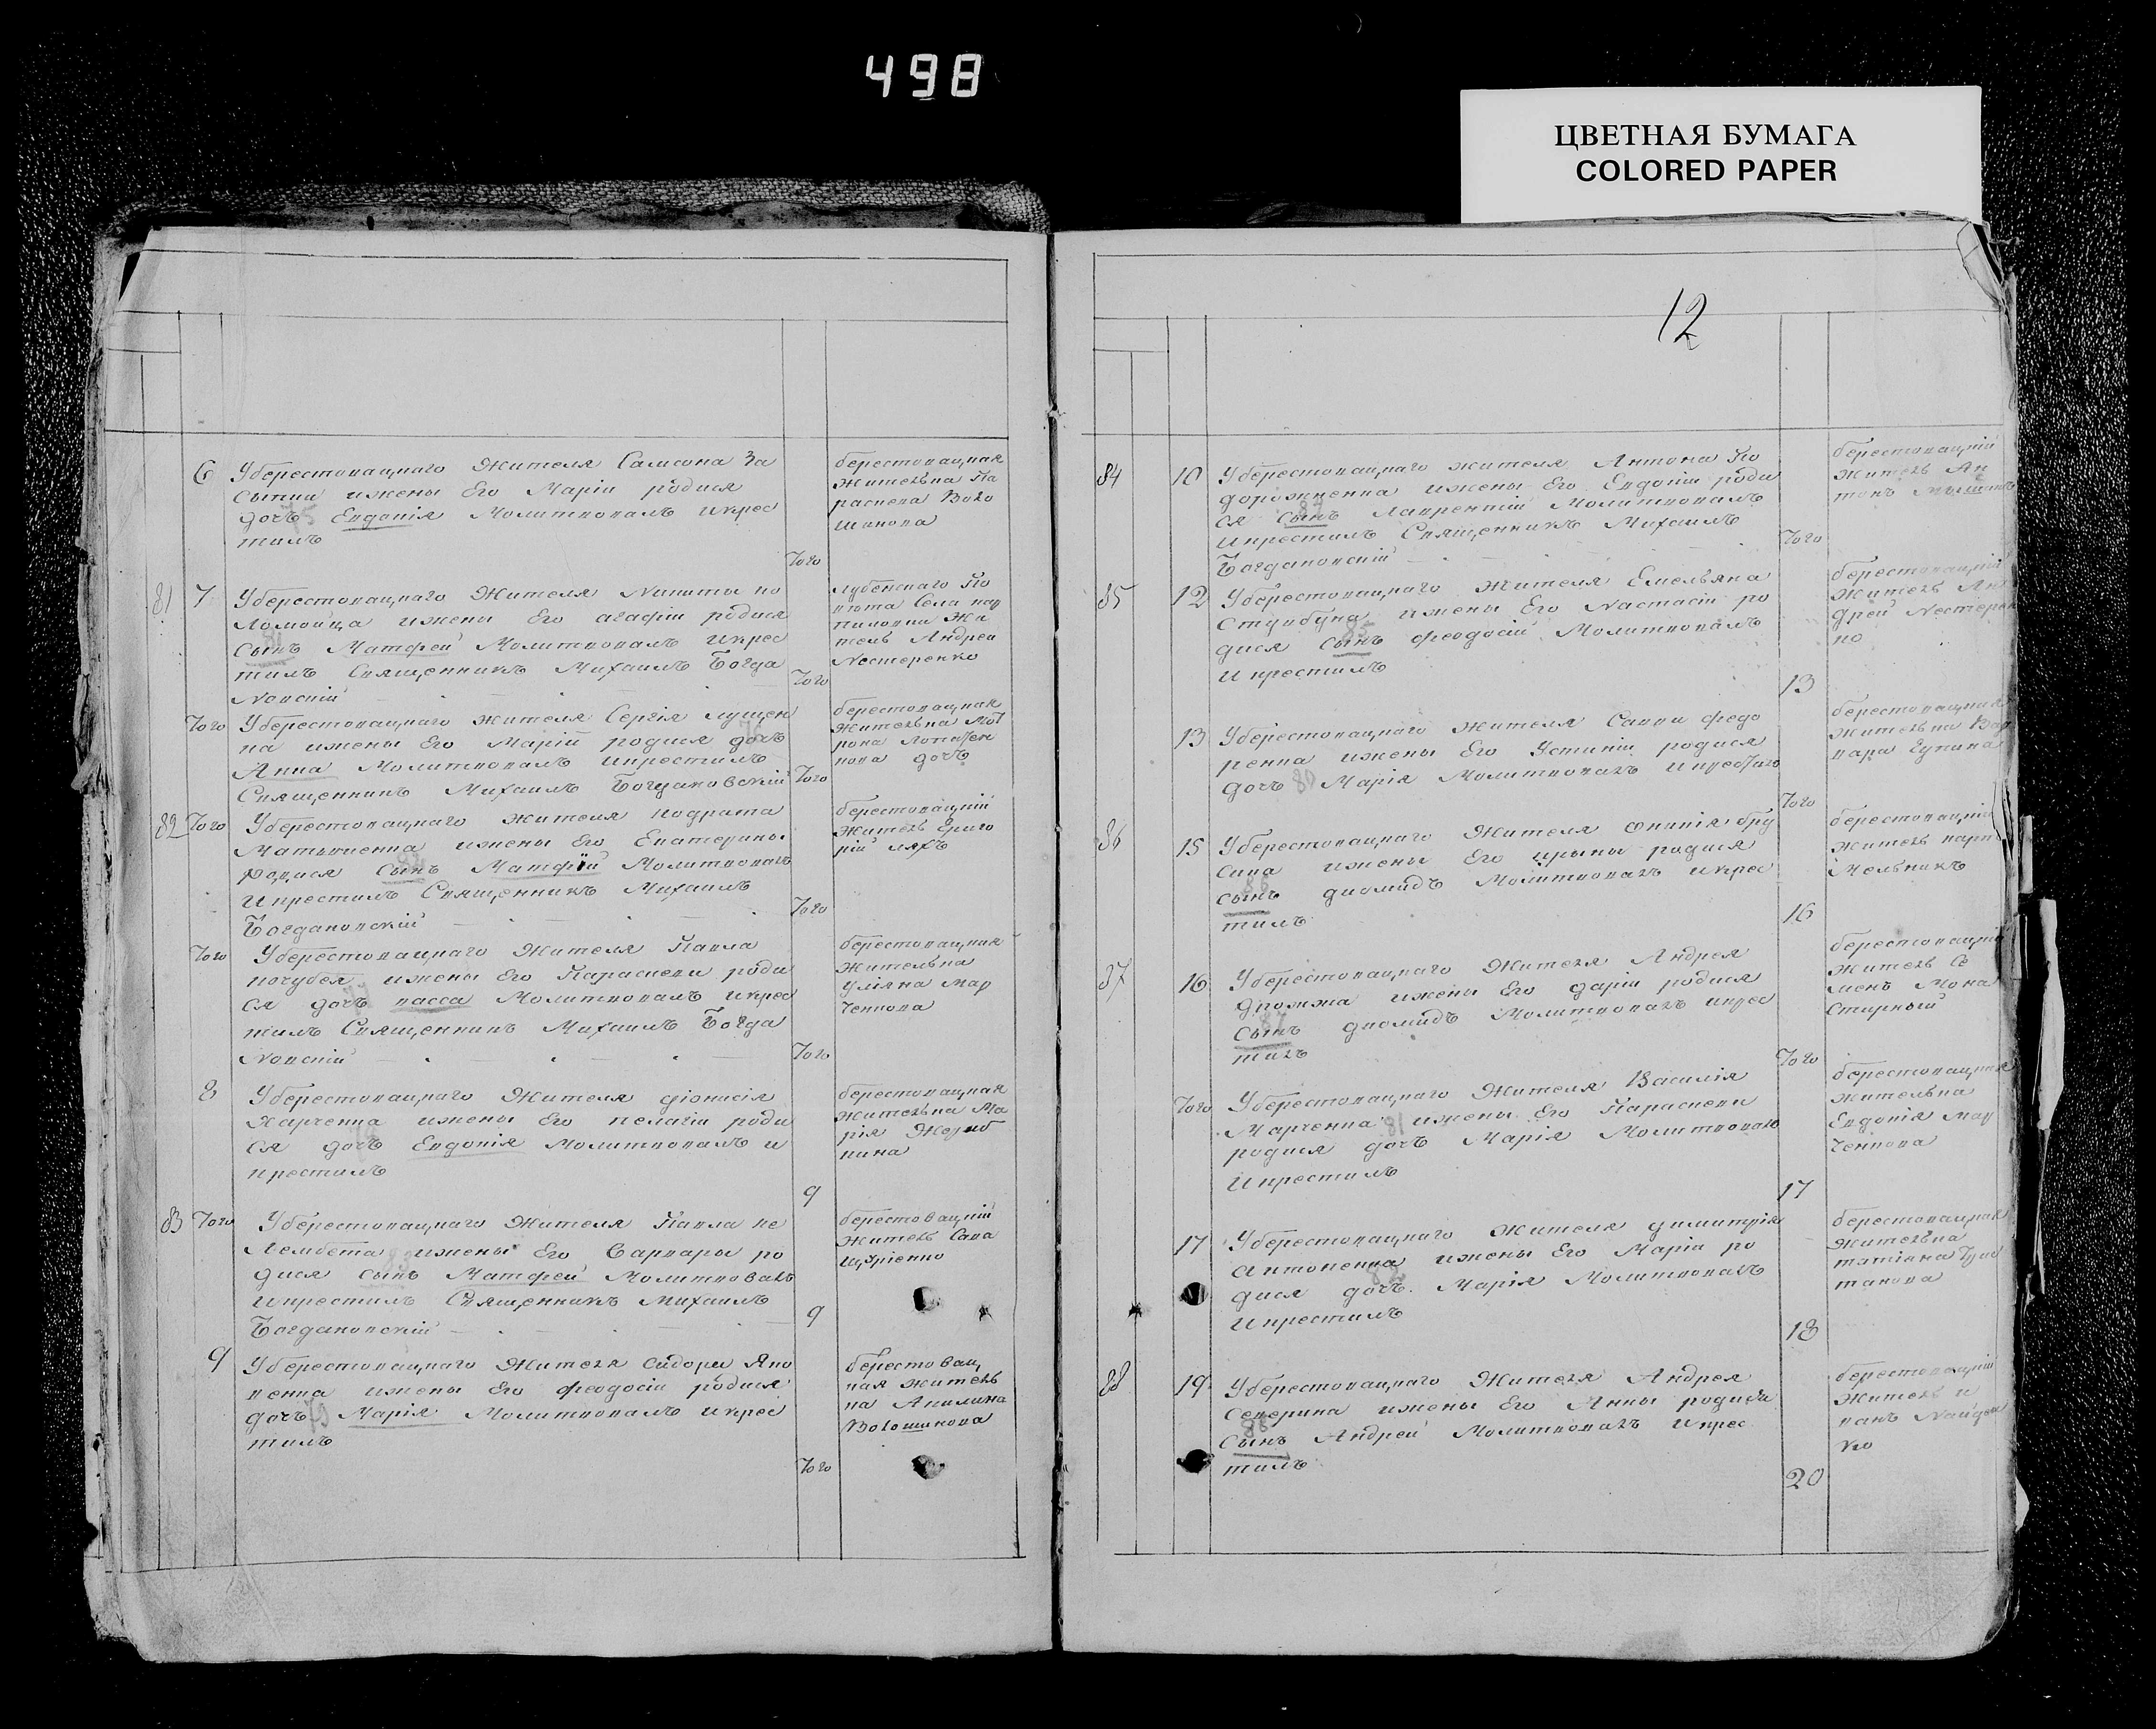 498
ЦВЕТНАЯ БУМАГА
COLORED PAPER
6 Уберестовацкаго Жителя Самсона За
сыпки ижены Его Маріи родися
дочь Евдокія Молитвовалъ икрес
тилъ
Того
берестовацкая
жителька Па
раскева Воло
шкова
81 7 Уберестовацкаго Жителя Никиты ко
ломойца ижены Его агафіи родися
сынъ Матфей Молитвовалъ икрес
тилъ Священникъ Михаилъ Богда
Новскій
Того
лубенскаго По
вета Села
Жи
тель Андрей
Нестеренко
Того Уберестовацкаго жителя Сергія луцен
ка ижены Его Маріи родися дочь
Анна Молитвовалъ икрестилъ
Священникъ Михаилъ Богдановскій
Того
берестовацкая
жителька Мот
рона
кова дочь
82 Того Уберестовацкаго жителя кодрата
Матвіенка ижены Его Екатерины
Родися Сынъ Матфій Молитвовалъ
Икрестилъ Священникъ Михаилъ
Богдановскій
Того
берестовацкій
Житель Григо
рій ляхъ
Того Уберестовацкаго Жителя Павла
кочубея ижены Его Параскеви роди
ся дочь васса Молитвовалъ икрес
тилъ Священникъ Михаилъ Богда
Новскій
Того
берестовацкая
Жителька
Уліяна Мар
Ченкова
8 Уберестовацкаго Жителя діонисія
Харченка ижены Его пелагіи роди
ся дочь Евдокія Молитвовалъ и
крестилъ
9
берестовацкая
жителька Ма
рія
кина
83 Того Уберестовацкаго Жителя Павла ке
Лембета ижены Его Варвары ро
дися сынъ Матфей Молитвовалъ
Икрестилъ Священникъ Михаилъ
Богдановскій
9
берестовацкій
Житель Сава
9 Уберестовацкаго Жителя сидора Яко
венка ижены Его феодосіи родися
дочь Марія Молитвовалъ икрес
тилъ
Того
берестовац
кая житель
ка Акилина
Волошинова
12
84 10 Уберестовацкаго жителя Антона По
дорожненка ижены Его Евдокіи роди
ся Сынъ Лаврентій Молитвовалъ
Икрестилъ Священникъ Михаилъ
Богдановскій
Того
берестовацкій
житель Ан
тонъ
85 12 Уберестовацкаго жителя Емельяна
Стукбуна ижены Его Настасіи ро
дися Сынъ феодосій Молитвовалъ
И крестилъ
13
берестовацкій
Житель Ан
дрей Нестерен
ко
13 Уберестовацкаго Жителя Савви федо
ренка ижены Его Устиніи родися
дочь Марія Молитвовалъ икрестилъ
Того
берестовацкая
жителька Вар
вара
86 15 Уберестовацкаго Жителя
сина ижены Его ирыны родися
сынъ диомидъ Молитвовалъ икрес
тилъ
16
берестовацкій
житель карп
Мельникъ
87 16 Уберестовацкаго Жителя Андрея
Дрожжа ижены Его дарии родися
Сынъ диомидъ Молитвовалъ икрес
тилъ
Того
берестовацкій
житель Се
менъ Мона
Стирный
Того Уберестовацкаго Жителя Василія
Марченка ижены Его Параскеви
родися дочь Марія Молитвовалъ
Икрестилъ
17
берестовацкая
жителька
Евдокія Мар
Ченкова
17 Уберестовацкаго жителя димитрія
Антоненка ижены Его Маріи ро
дися дочь Марія Молитвовалъ
Икрестилъ
18
берестовацкая
жителька
татіяна
танова
88 19 Уберестовацкаго Жителя Андрея
Северина ижены Его Анны родися
Сынъ Андрей Молитвовалъ Икрес
тилъ
20
берестовацкій
Житель и
ванъ Найден
ко